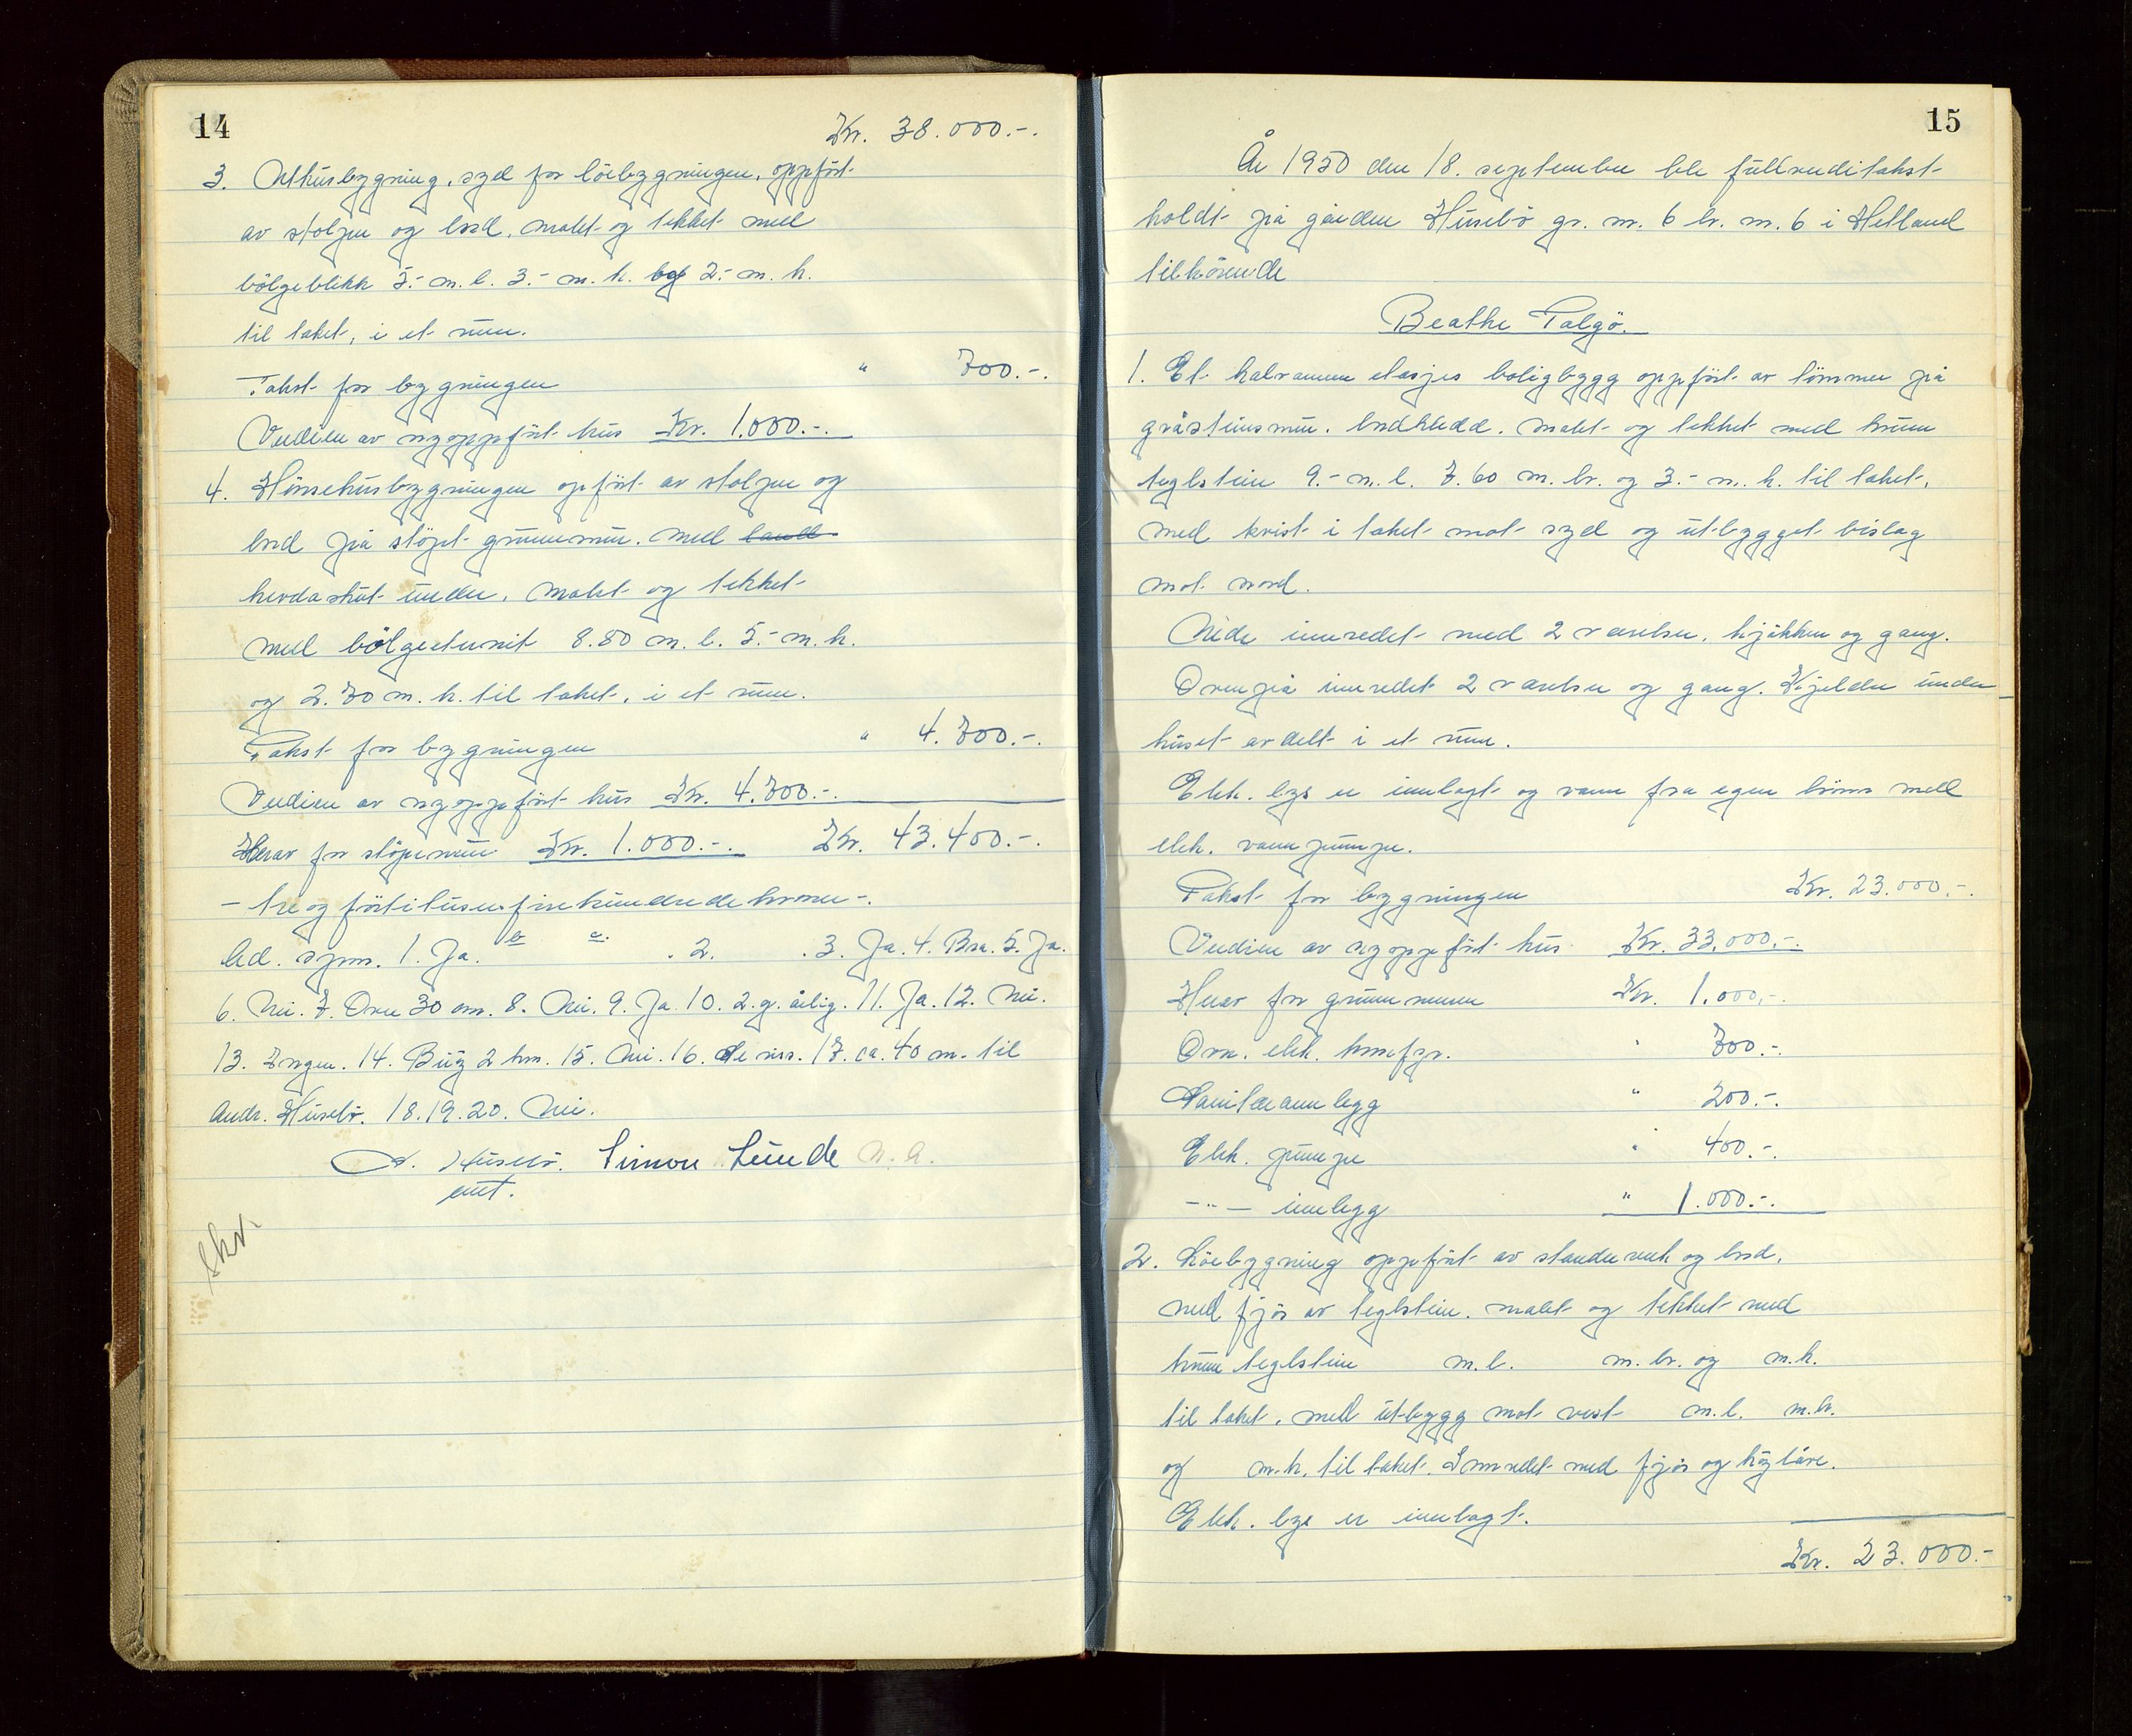 14
Kr. 38.000.-.
3. Uthusbygning, syd for löebygningen, oppfört
av stolper og bord, malt og tekket med
bölgeblikk 5.- m. l. 3.- m. h. og 2.- m. h.
til taket, i et rum.
Takst for bygningen " 700.-.
Verdien av nyoppfört hus Kr. 1.000.-.
4. Hönsehusbygningen opfört av stolper og
bord på stöpt grunnmur, med
under, malt og tekket
med bölgeeternit 8.80 m. l. 5.- m. h.
og 2.70 m. h. til taket, i et rum.
Takst for bygningen " 4.700.-.
Verdien av nyoppfört hus Kr. 4.700.-.
Herav for stöpemur Kr. 1.000.-. Kr. 43.400.-.
- tre og förtitusenfirehundrede kroner -.
Led. spm. 1. Ja. b a. . 2. . 3. Ja. 4. Bra. 5. Ja.
6. Nei. 7. Over 30 cm. 8. Nei. 9. Ja. 10. 2. g. årlig. 11. Ja. 12. Nei.
13. Ingen. 14. Bug 2 km. 15. Nei. 16. Se riss. 17. ca. 40 m. til
Andr. Husebö. 18. 19. 20. Nei.
A. Husebö. Simon Lunde
eut.
Skr.
15
År 1950 den 18. september ble fullverditakst
holdt på gården Husebö gr. nr. 6 br. nr. 6 i Hetland
tilhörende
Beathe Talgö.
1. Et halvannen etasjes boligbygg oppfört av tömmer på
gråsteinsmur, bordkledd, malt og tekket med krum
teglstein 9.- m. l. 7.60 m. br. og 3.- m. h. til taket,
med kvist i taket mot syd og utbygget bislag
mot nord.
Nede innredet med 2 værelser, kjökken og gang.
Ovenpå innredet 2 værelser og gang. Kjelder under
huset avdelt i et rum.
Elek. lys er innlagt og vann fra egen brönn med
elek. vannpumpe.
Takst for bygningen Kr. 23.000.-.
Verdien av nyoppfört hus Kr. 33.000.-.
Herav for grunnmuren Kr. 1.000.-.
Ovn. elek. komfyr. " 700.-.
Sanitæranlegg " 200.-.
Elek. pumpe " 400.-.
-"- innlegg " 1.000.-.
2. Löebygning oppfört av standerverk og bord,
med fjös av teglstein, malt og tekket med
krum teglstein m. l. m. br. og m. h.
til taket, med utbygg mot vest m. l. m. br.
og m. h. til taket. Innredet med fjös og höylåve.
Elek. lys er innlagt.
Kr. 23.000.-